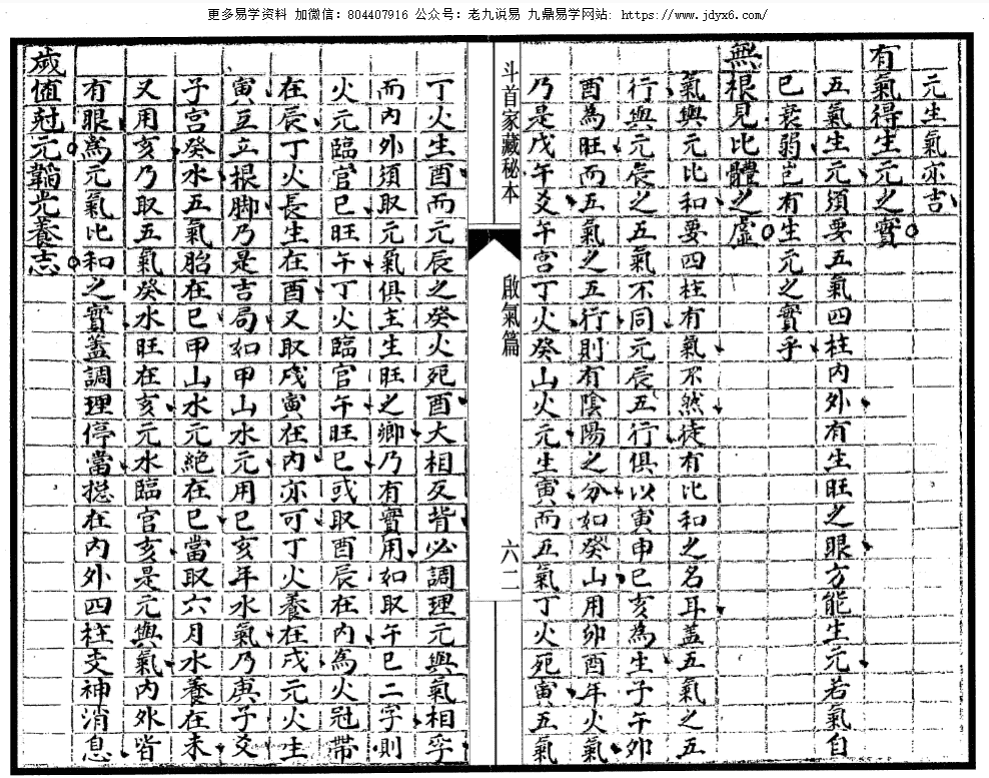 更多易学资料 加微信：804407916 公众号：老九说易 九鼎易学网站: https://www.jdyx6.com/
元生氣亦吉
有氣得生元之實
五氣生元須要五氣四柱內外有生旺之眼方能生元若氣自
已衰弱豈有生元之實乎
無根見比體之虛
氣與元比和要四柱有氣不然徒有比和之名耳蓋五氣之五
行與元辰之五氣不同元辰五行俱以寅申巳亥為生子午卯
酉為旺而五氣之五行則有陰陽之分如癸山用卯酉年火氣
乃是戊午爻午宮丁火癸山火元生寅而五氣丁火死寅五氣
斗首家藏秘本
啟氣篇
六二
丁火生酉而元辰之癸火死酉大相反背必調理元與氣相孚
而內外須取元氣俱主生旺之鄉乃有實用如取午巳二字則
火元臨官巳旺午丁火臨官午旺巳或取酉辰在內為火冠帶
在辰丁火長生在酉又取戌寅在內亦可丁火養在戌元火生
寅互立根脚乃是吉局如甲山水元用巳亥年水氣乃庚子爻
子宮癸水五氣胎在巳甲山水元絕在巳當取六月水養在未
又用亥乃取五氣癸水旺在亥元水臨官亥是元與氣內外皆
有眼為元氣比和之實蓋調理停當搃在內外四柱支神消息
歲值尅元韜光養志